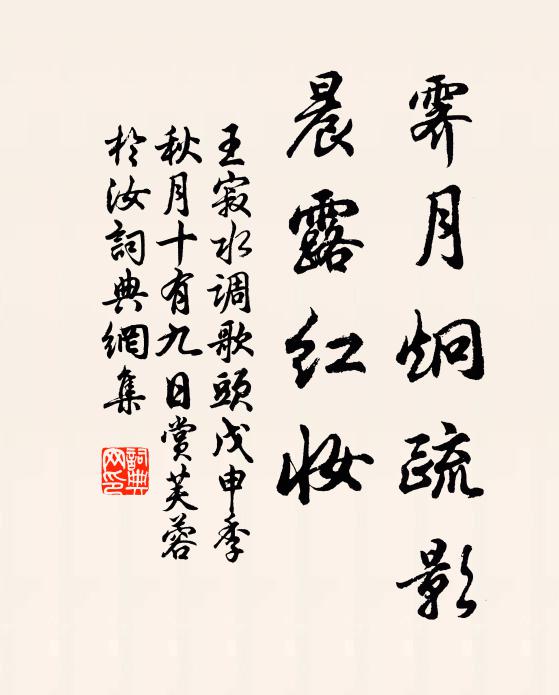 霁月炯疏影
晨露红妆
王寂水调歌頭戊申季
秋月十有九日赏芙蓉
於汝詞典網集
詞典网印